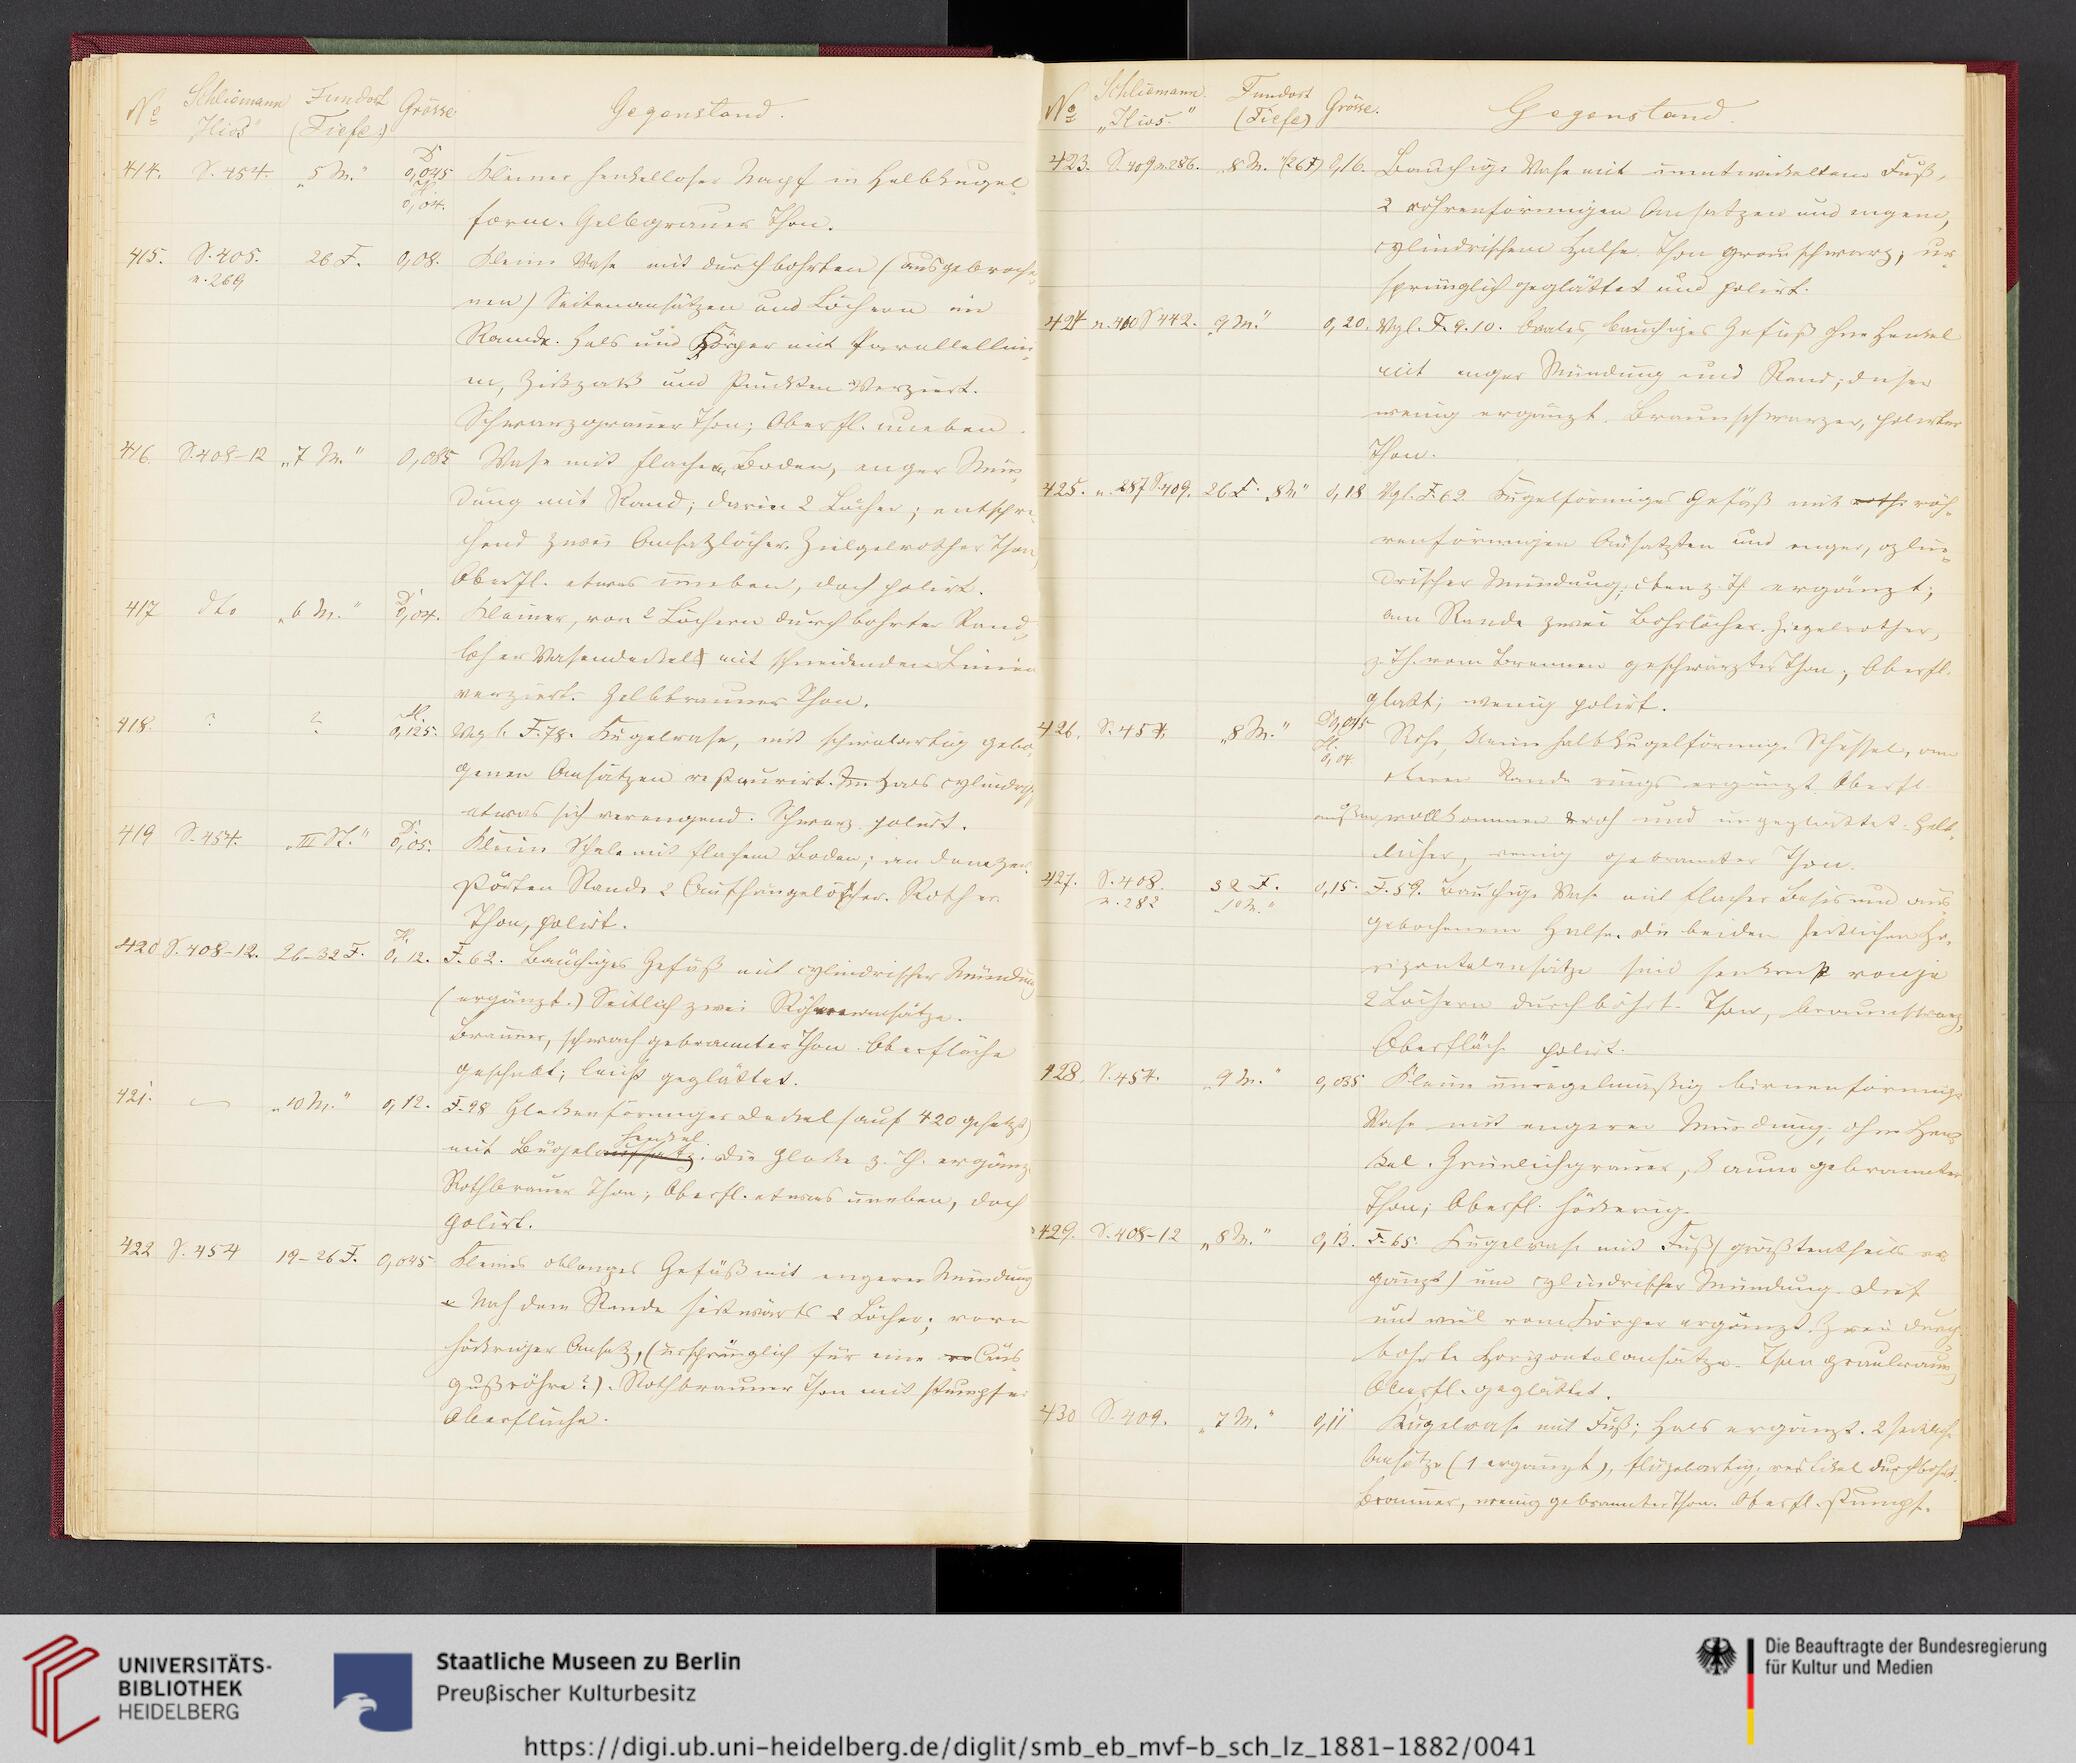 No Schliemann Fundort Grösse Gegenstand.
"Ilios" (Tiefe.)
414. S. 454. "5 M." D. 0,045 H. 0,04. Kleiner henkelloser Napf in Halbkugel-
form. Gelbgrauer Thon.
415. S. 405. n. 269 26 F. 0,08. Kleine Vase mit durchbohrten (ausgebroche-
nen) Seitenansätzen und Löchern im
Rande. Hals und Körper mit Parallellini-
en, Zickzack und Punkten verziert.
Schwarzgrauer Thon; Oberfl. uneben.
416. S. 408-12 "7 M." 0,085 Vase mit flachem Boden, enger Mün-
dung mit Rand; darin 2 Löcher; entspre-
chend zwei Ansatzlöcher. Ziegelrother Thon,
Oberfl. etwas uneben, doch polirt.
417 dto "6 M." D. 0,04. Kleiner, von 2 Löchern durchbohrter Rand-
loser Vasendeckel mit schneidenden Linien
verziert. Gelbbrauner Thon.
418. ? ? H. 0,125. Vgl. F. 78. Kugelvase, mit gebo-
genen Ansätzen restaurirt. Hals cylindrisch
etwas sich verengend. Schwarz polirt.
419 S. 454. "III St." D. 0,05. Kleine Schale mit flachem Boden; an dem zer-
störten Rande 2 Aufhängelöcher. Rother
Thon, polirt.
420 S. 408-12. 26-32 F. H. 0,12. F. 62. Bauchiges Gefäß mit cylindrischer Mündung
(ergänzt.) Seitlich zwei Röhrenansätze.
Brauner, schwach gebrannter Thon. Oberfläche
geglättet.
421. — "10 M." 0,12. F. 98 Glockenförmiger Deckel (auf 420 gesetzt)
mit Bügelhenkel. Die Glocke z. Th. ergänzt
Rothbrauner Thon; Oberfl. etwas uneben, doch
polirt.
422 S. 454 19-26 F. 0,045. Kleines oblonges Gefäß mit engerer Mündung
Nach dem Rande seitwärts 2 Löcher; vorn
höckriger Ansatz, (ursprünglich für eine Aus-
gußröhre?). Rothbrauner Thon mit stumpfer
Oberfläche.
No Schliemann. Fundort Grösse. Gegenstand.
"Ilios." (Tiefe)
423. S. 409 n. 286. "8 M." (26 F) 0,16. Bauchige Vase mit unentwickeltem Fuß,
2 röhrenförmigen Ansätzen und engem,
cylindrischem Halse. Thon grauschwarz; ur-
sprünglich geglättet und polirt.
424 n. 400 S 442. "9 M." 0,20. Vgl. F. 9. 10. Ovales, bauchiges Gefäß ohne Henkel
mit enger Mündung und Rand; dieser
wenig ergänzt. Braunschwarzer, polirter
Thon.
425. n. 287 S. 409. 26 F. "8 M" 0,18 Vgl. F. 62 Kugelförmiges Gefäß mit röh-
renförmigen Ansätzen und enger, cylin-
drischer Mündung; oben z. Th ergänzt;
am Rande zwei Bohrlöcher. Ziegelrother,
z. Th. vom Brennen geschwärzter Thon; Oberfl.
glatt; wenig polirt.
426. S. 454. "8 M." D 0,045 H. 0,04 Rohe, kleine halbkugelförmige Schüssel, am
oberen Rande rings ergänzt. Oberfl.
außen vollkommen roh und ungeglättet.
wenig gebrannter Thon.
427. S. 408. n. 282 32 F. "10 M." 0,15. F. 59. Bauchige Vase mit flacher Basis und aus-
gebochenem Halse. Die beiden seitlichen Ho-
rizontalansätze sind senkrecht von je
2 Löchern durchbohrt. Thon, braunschwarz,
Oberfläche polirt.
428. S. 454. "9 M." 0,035 Kleine unregelmäßig birnenförmige
Vase mit engerer Mündung, ohne Hen-
kel. Grünlichgrauer, kaum gebrannter
Thon; Oberfl. höckerig.
429. S. 408-12 "8 M." 0,13. F. 65. Kugelvase mit Fuß (größtentheils er-
gänzt) und cylindrischer Mündung. Dies
und viel vom Körper ergänzt. Zwei durch-
bohrte Horizontalansätze. Thon graubraun,
Oberfl. geglättet.
430 S. 409. "7 M." 0,11 Kugelvase mit Fuß; Hals ergänzt. 2 seitliche
Ansätze (1 ergänzt), flügelartig, vertikal durchbohrt.
Brauner, wenig gebrannter Thon. Oberfl. stumpf.
UNIVERSITÄTS-
BIBLIOTHEK
HEIDELBERG
Staatliche Museen zu Berlin
Preußischer Kulturbesitz
Die Beauftragte der Bundesregierung
für Kultur und Medien
https://digi.ub.uni-heidelberg.de/diglit/smb_eb_mvf-b_sch_lz_1881-1882/0041